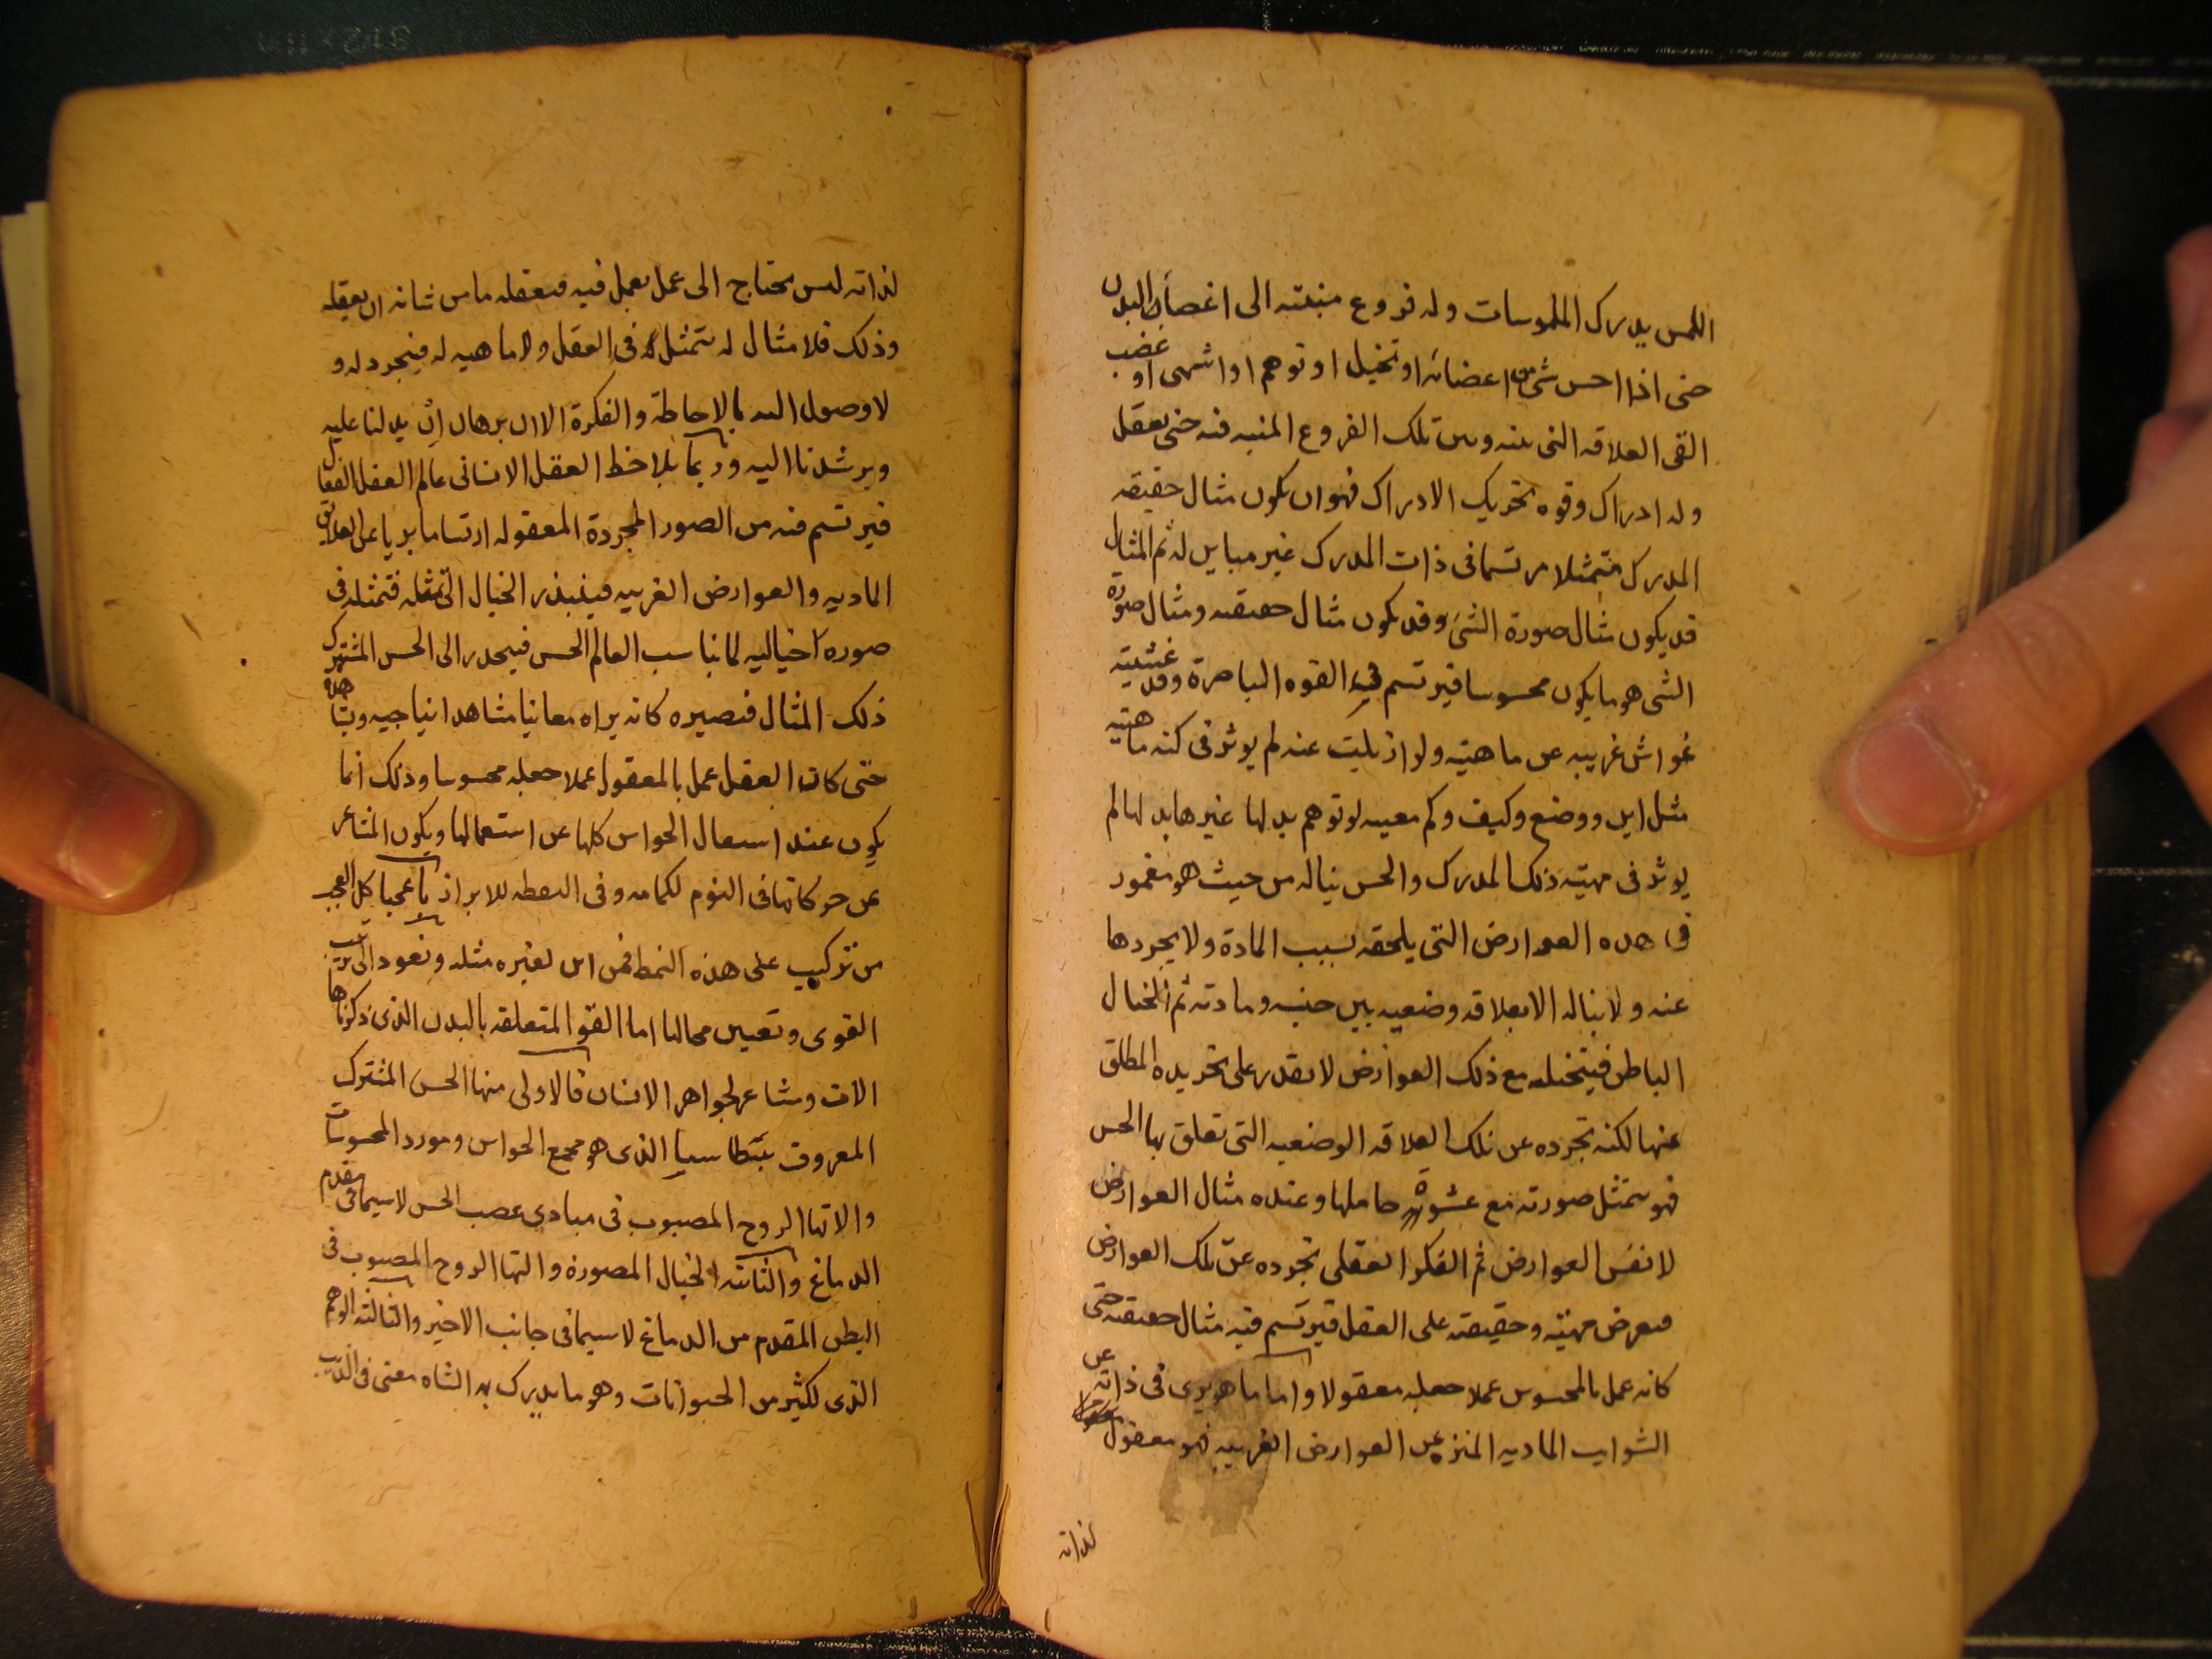 اللمس يدرك الملموسات وله فروع منبثه الى اغصان البدن
حتى اذا احس شئ من اعضائه او تخيل او توهم او اشتهى او غضب
القى العلاقه التى بينه وبين تلك الفروع المنبه فيه حتى يعقل
وله ادراك وقوه تحريك الادراك فهو ان يكون مثال حقيقه
المدرك متمثلا مرتسما فى ذات المدرك غير مباين له ثم المثال
قد يكون مثال صورة الشئ وقد يكون مثال حقيقته ومثال صورة
الشى هو ما يكون محسوسا فيرتسم فى القوه الباصرة وقد غشيته
غواش غريبه عن ماهيته ولو ازيلت عنه لم يوثر فى كنه ماهيته
مثل اين ووضع وكيف وكم معينه لو توهم بدلها غيرها بدلها لم
يوثر فى مهيته ذلك المدرك والحس يناله من حيث هو مغمور
فى هذه العوارض التى يلحقه بسبب المادة ولا يجردها
عنه ولا يناله الا بعلاقه وضعيه بين حسه ومادته ثم الخيال
الباطن فيتخيله مع ذلك العوارض لا يقدر على تجريده المطلق
عنها لكنه تجرده عن تلك العلاقه الوضعيه التى تعلق بها الحس
فهو يتمثل صورته مع حاملها وعنده مثال العوارض
لا نفس العوارض ثم الفكر العقلى تجرده عن تلك العوارض
فيعرض مهيته وحقيقته على العقل فيرتسم فيه مثال حقيقته حتى
كانه عمل بالمحسوس عملا جعله معقولا واما ما هو برى فى ذاته عن
الشوايب الماديه المنزه عن العوارض الغريبه فهو معقول
لذاته
لذاته ليس يحتاج الى عمل يعمل فيه فيعقله ما من شانه ان يعقله
وذلك فلا مثال له يتمثل له فى العقل ولا ماهيه له فيتجرد له و
لا وصول اليه بالاحاطة والفكرة الا ان برهان ان يدلنا عليه
ويرشدنا اليه وربما يلاحظ العقل الانسانى عالم العقل الفعال
فيرتسم فيه من الصور المجردة المعقوله ارتساما بريا عن العلايق
الماديه والعوارض الغريبه فيبتدر الخيال الى تمثله فتمثله فى
صوره خياليه لما يناسب العالم الحس فينحدر الى الحس المشترك
ذلك المثال فيصيره كانه يراه معاينا مشاهدا يناجيه ويشاهده
حتى كان العقل عمل بالمعقول عملا جعله محسوسا وذلك انما
يكون عند اسعال الحواس كلها عن استعمالها ويكون المشاعر
عن حركاتها فى النوم لكمامه وفى اليقظه للابراز يا عجبا كل العجب
من تركيب على هذه النمط فمن اين لغيره مثله ونعود الى ترتيب
القوى وتعيين محالها اما القو المتعلقه بالبدن الذى ذكرناها
الات ومشاعر لجواهر الانسان فالاولى منها الحس المشترك
المعروف بنطاسيا الذى هو مجمع الحواس ومورد المحسوسات
والاتها الروح المصبوب فى مبادى عصب الحس لاسيما فى مقدم
الدماغ والثانيه الخيال المصورة والتها الروح المصبوب فى
البطن المقدم من الدماغ لاسيما فى جانب الاخير والثالثه الوهم
الذى لكثير من الحيوانات وهو ما يدرك به الشاه معنى فى الذيب